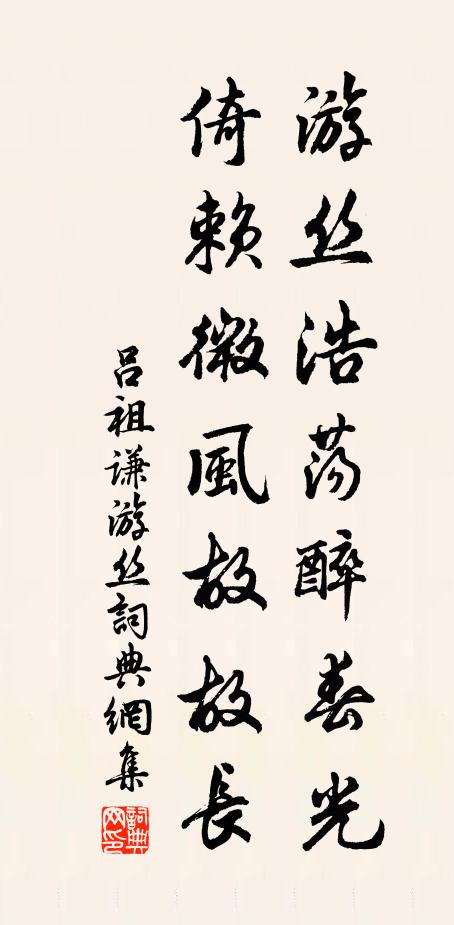 游丝浩荡醉春光
倚赖微風故故長
吕祖谦游丝詞典網集
詞典网印